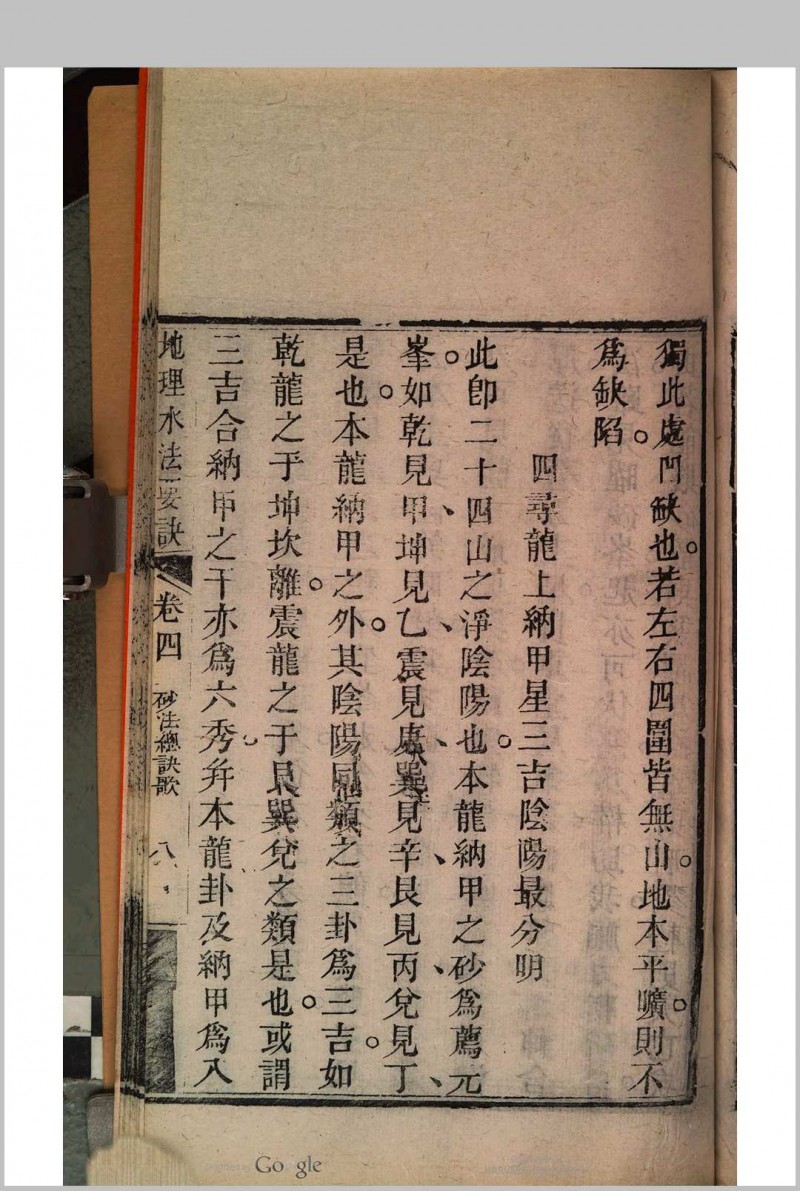 獨此處凹缺也。若左右四圍皆無山。地本平曠。則不
爲缺陷。
四尋龍上納甲星三吉陰陽最分明
此卽二十四山之淨陰陽也。本龍納甲之砂爲薦元
峯。如乾見甲、坤見乙、震見庚、巽見辛、艮見丙、兌見丁、
是也。本龍納甲之外。其陰陽同類之三卦爲三吉。如
乾龍之于坤坎離。震龍之于艮巽兌之類是也。或謂
三吉合納甲之干亦爲六秀。幷本龍卦及納甲爲八
地理水法要訣
卷四
砂法總訣歌
八
Google